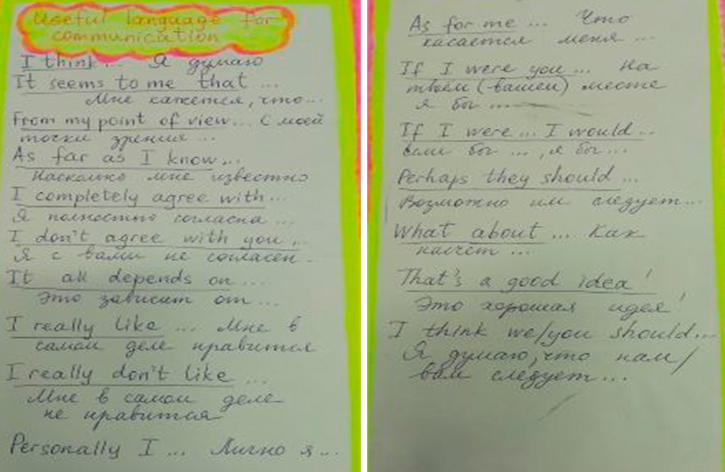 Useful language for
communication
I think... Я думаю
It seems to me that ...
Мне кажется, что...
From my point of view... С моей
точки зрения...
As far as I know...
Насколько мне известно
I completely agree with...
Я полностью согласна ...
I don't agree with you...
Я с вами не согласен.
It all depends on ...
Это зависит от ...
I really like ... Мне в
самом деле нравится
I really don't like ...
Мне в самом деле
не нравится
Personally I ... Лично я ...
As for me ... Что
касается меня ...
If I were you ... На
твоём (вашем) месте
я бы ...
If I were ... I would...
если бы ..., я бы ...
Perhaps they should ...
Возможно им следует...
What about ... Как
насчёт ...
That's a good idea!
Это хорошая идея!
I think we/you should...
Я думаю, что нам/
вам следует...